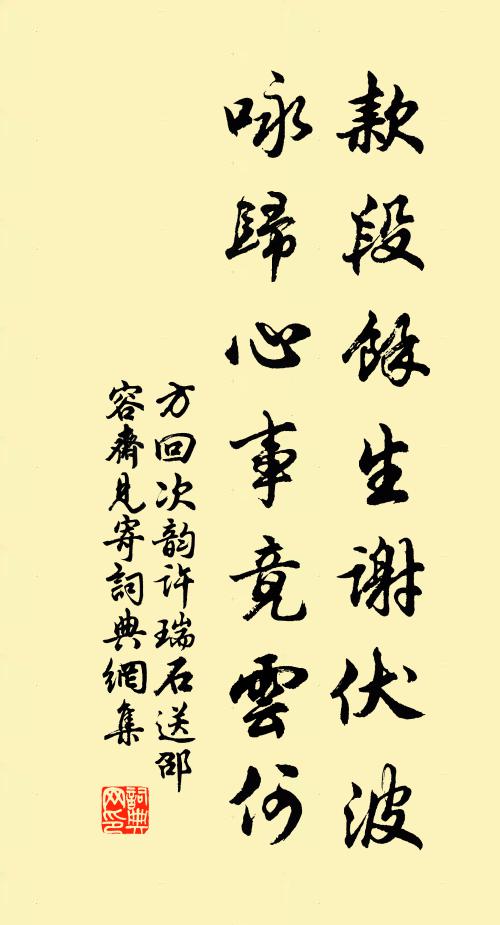 款段餘生謝伏波
咏歸心事竟雲何
方回次韵許瑞石送邵
容齋見寄詞典網集
詞典
网印